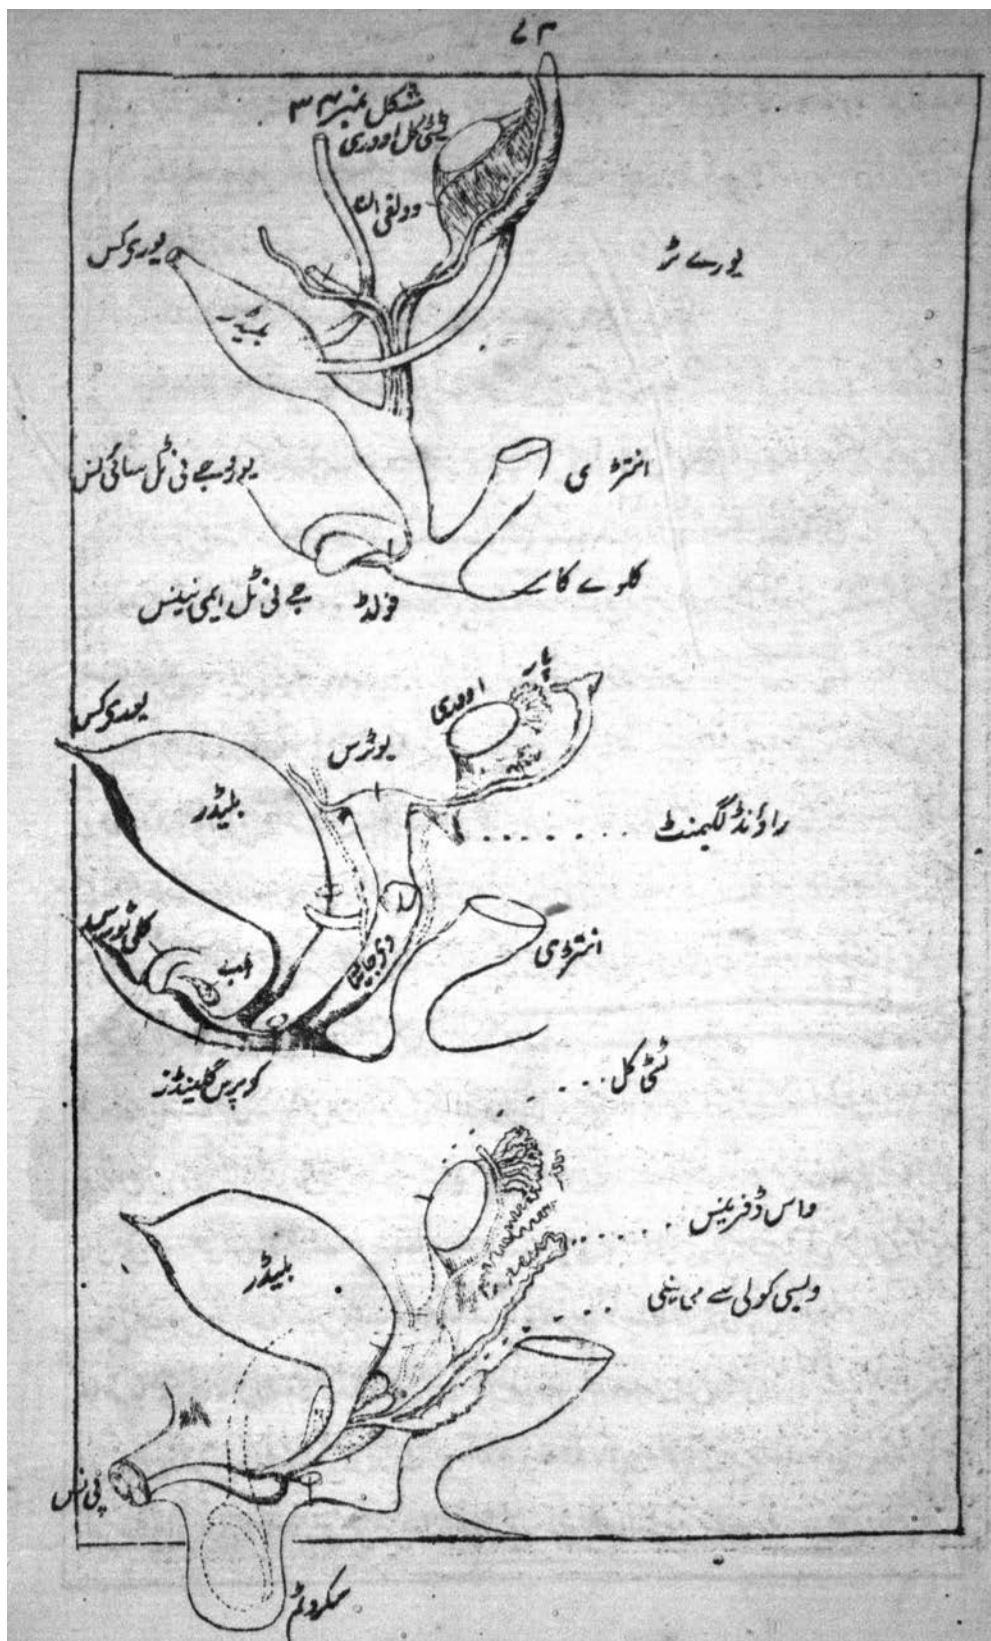 ۷۳
شکل نمبر ۳۴
ٹسٹی کل اووری
وولفی ان
یوریکس
بلیڈر
یورے ٹر
یورو جے نی ٹل سائی نس
انتڑی
کلوے کا
فولڈ
جے نی ٹل ایمی نینس
یوریکس
اووری
پار
یوٹرس
بلیڈر
راؤنڈ لگیمنٹ
کلی ٹورس
لب
وی جائنا
انتڑی
کوپرس گلینڈز
ٹسٹی کل
واس ڈفرینس
بلیڈر
ویسی کولی سے می نیلی
پی نس
سکروٹم